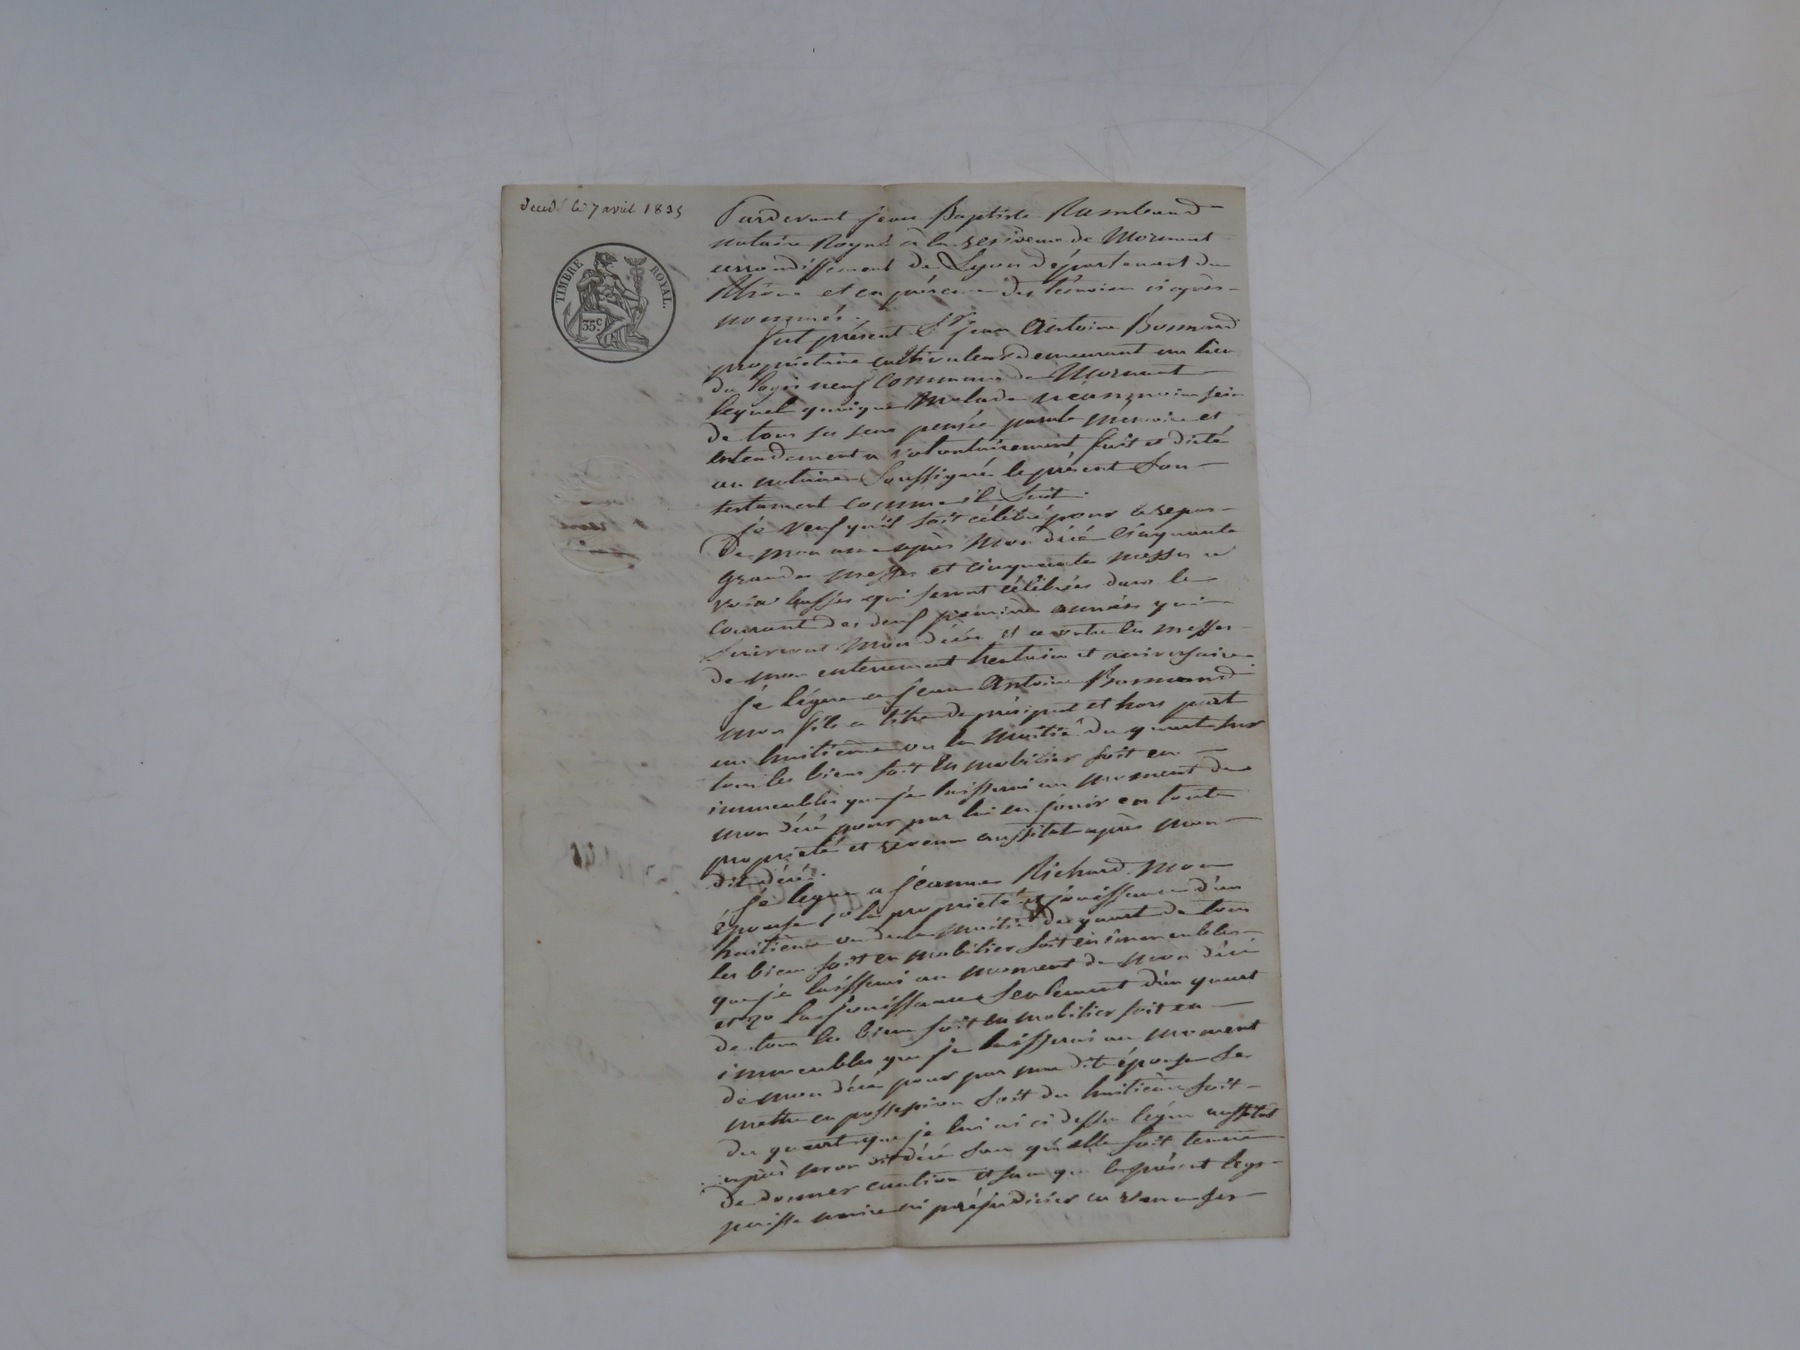 décédé le 7 avril 1835
TIMBRE ROYAL.
35 C.
Pardevant Jean Baptiste Rambaud
notaire Royal à la residence de Mornant
arrondissement de Lyon département du
Rhône et en présence des témoins ci après
nommés.
fut présent Sr. Jean Antoine Bonnard
propriétaire cultivateur demeurant au lieu
du logis neuf commune de Mornant
lequel quoique malade néanmoins sain
de tous ses sens pensée parole mémoire et
entendement a volontairement fait et dicté
au notaire soussigné le présent son
testament comme il suit.
je veux qu'il soit célébré pour le repos
de mon ame après mon décé cinquante
grandes messes et cinquante messes a
voix basses qui seront célébrées dans le
courant des deux premières années qui
suivront mon décès et ce outre les messes
de mon enterrement trentain et aniversaire
je lègue a jean Antoine Bonnard
mon fils a titre de préciput et hors part
un huitième ou la moitié du quart sur
tous les biens soit en mobilier soit en
immeubles que je laisserai au moment de
mon décé pour par lui en jouir en toute
propriété et revenu aussitot après mon
dit décé.
je legue a jeanne Richard mon
épouse 1o la propriété et jouissance d'un
huitième ou de la moitié du quart de tous
les biens soit en mobilier soit en immeubles
que je laisserai au moment de mon décé
et 2o la jouissance seulement d'un quart
de tous les biens soit en mobilier soit en
immeubles que je laisserai au moment
de mon décé pour par ma dite épouse se
mettre en possession soit du huitième soit
du quart que je lui ai ci dessus légué aussitot
après mon dit décé sans qu'elle soit tenue
de donner caution et sans que le présent legs
puisse nuire ni préjudicier en rien a ses